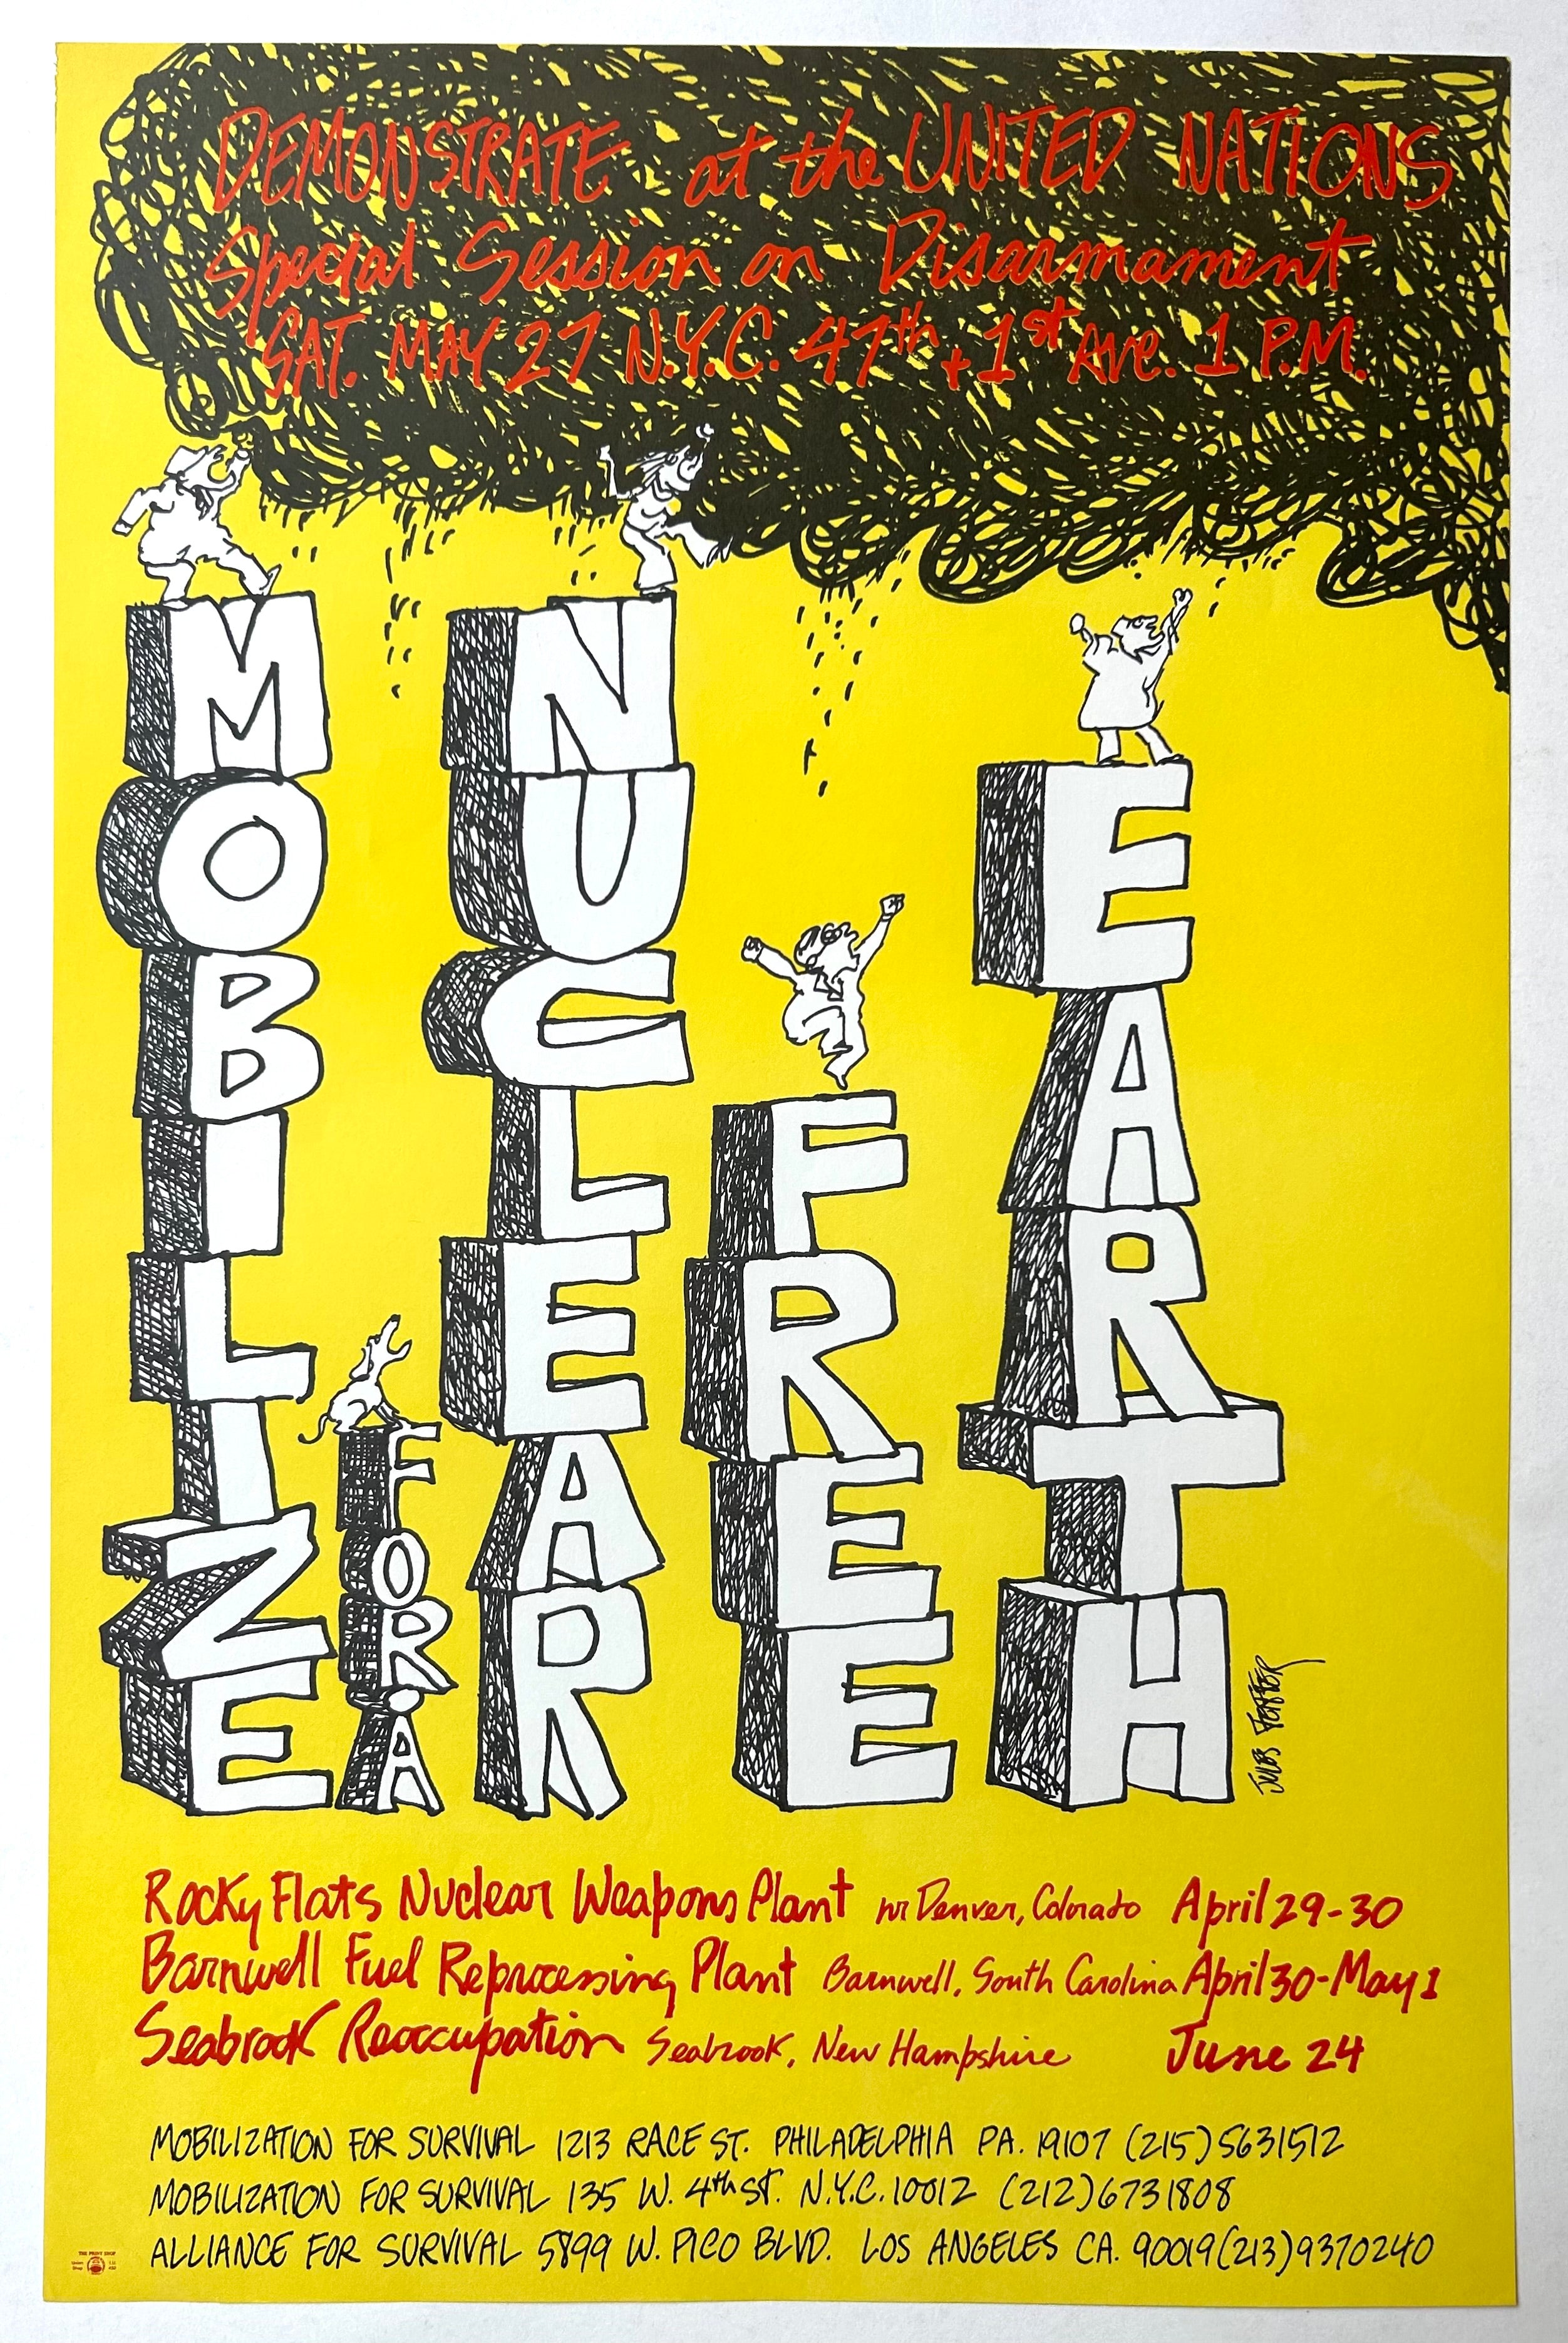 DEMONSTRATE at the UNITED NATIONS
Special Session on Disarmament
SAT. MAY 27 N.Y.C. 47th + 1st Ave. 1 P.M.
MOBILIZE
FOR A
NUCLEAR
FREE
EARTH
JULES FEIFFER
Rocky Flats Nuclear Weapons Plant nr Denver, Colorado April 29-30
Barnwell Fuel Reprocessing Plant Barnwell, South Carolina April 30-May 1
Seabrook Reoccupation Seabrook, New Hampshire June 24
MOBILIZATION FOR SURVIVAL 1213 RACE ST. PHILADELPHIA PA. 19107 (215)5631512
MOBILIZATION FOR SURVIVAL 135 W. 4th ST. N.Y.C. 10012 (212)6731808
ALLIANCE FOR SURVIVAL 5899 W. PICO BLVD. LOS ANGELES CA. 90019(213)9370240
THE PRINT SHOP